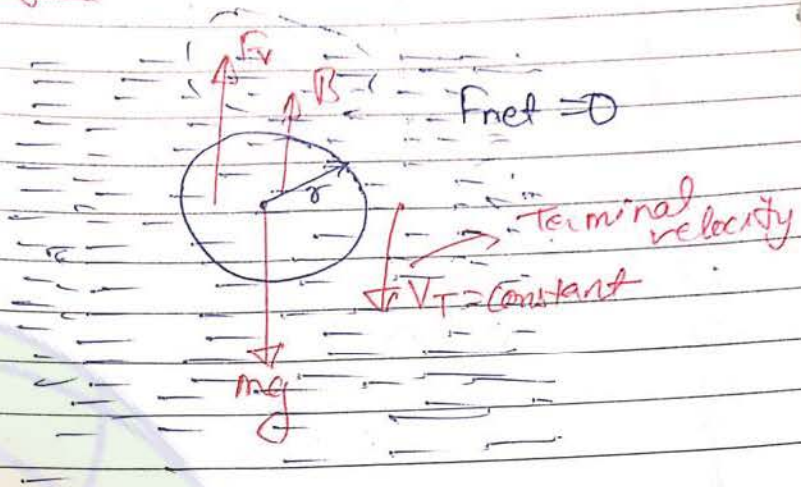 Fv
B
Fnet = 0
r
Terminal
velocity
VT = Constant
mg